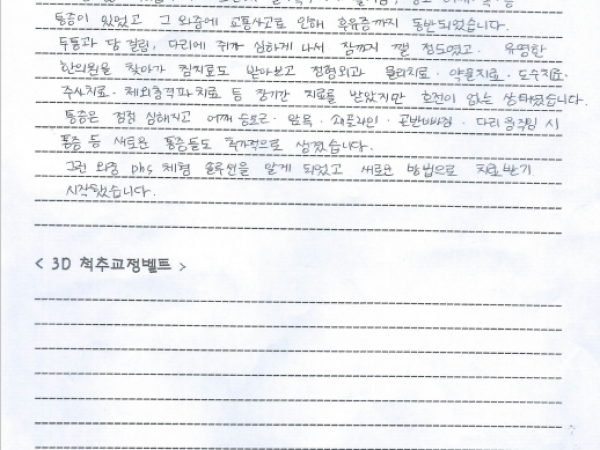 통증이 있었고 그 와중에 교통사고로 인해 후유증까지 동반되었습니다.
두통과 담 걸림, 다리에 쥐가 심하게 나서 잠까지 깰 정도였고. 유명한
한의원을 찾아가 침치료도 받아보고 정형외과 물리치료·약물치료·도수치료·
주사치료·체외충격파치료 등 장기간 치료를 받았지만 호전이 없는 상태였습니다.
통증은 점점 심해지고 어깨 승모근·양쪽·쇄골라인·골반비대칭·다리 움직임 시
통증 등 새로운 통증들도 추가적으로 생겼습니다.
그런 와중 phs 체형 솔루션을 알게 되었고 새로운 방법으로 치료받기
시작했습니다.
< 3D 척추교정벨트 >